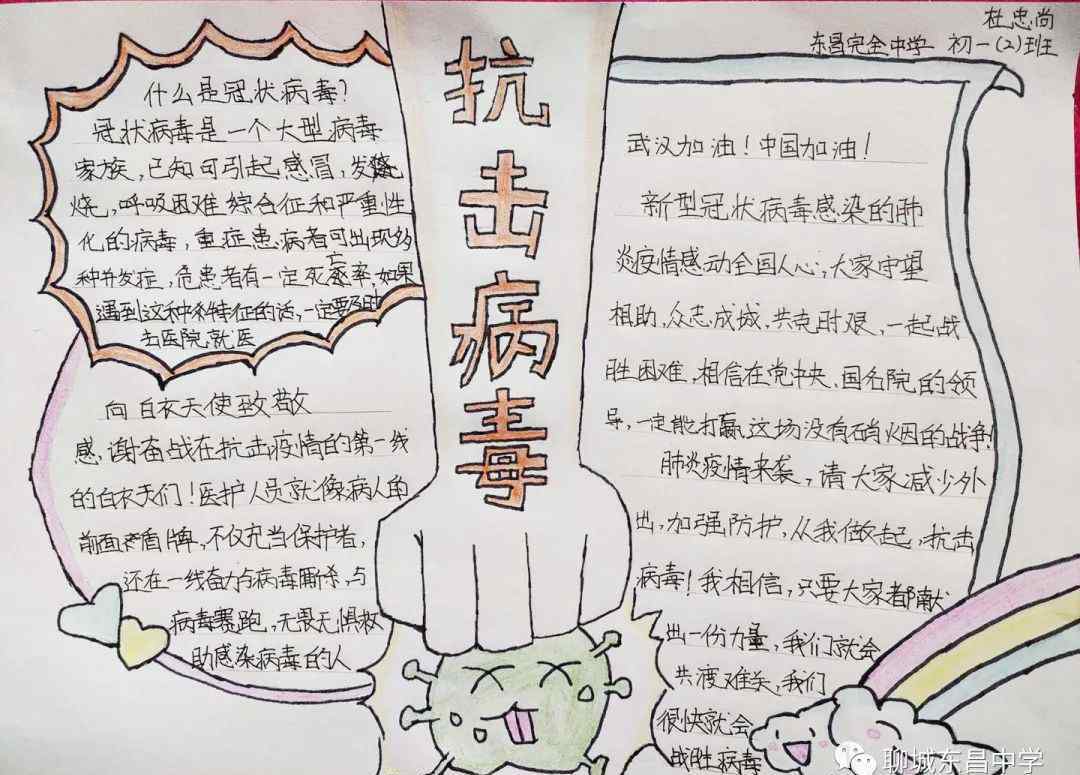 杜忠尚
东昌完全中学 初一(2)班
抗击病毒
什么是冠状病毒?
冠状病毒是一个大型病毒
家族,已知可引起感冒,发
烧,呼吸困难综合征和严重性
化的病毒,重症患病者可出现多
种并发症,危患者有一定死亡率,如果
遇到这种种特征的话,一定要及时
去医院就医
向白衣天使致敬
感谢奋战在抗击疫情的第一线
的白衣天们!医护人员就像病人的
前面盾牌,不仅充当保护者,
还在一线奋力与病毒厮杀,与
病毒赛跑,无畏无惧救
助感染病毒的人
武汉加油!中国加油!
新型冠状病毒感染的肺
炎疫情感动全国人心,大家守望
相助,众志成城,共克时艰,一起战
胜困难,相信在党中央、国务院的领
导,一定能打赢这场没有硝烟的战争!
肺炎疫情来袭,请大家减少外
出,加强防护,从我做起,抗击
病毒!我相信,只要大家都献
出一份力量,我们就会
共渡难关,我们
很快就会
战胜病毒
聊城东昌中学